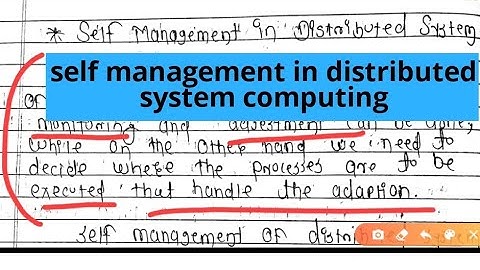 * Self Management in Distributed System
self management in distributed
system computing
Of
monitoring and adjustment can be done,
while on the other hand we need to
decide where the processes are to be
executed that handle the adaption.
self management OF distrib